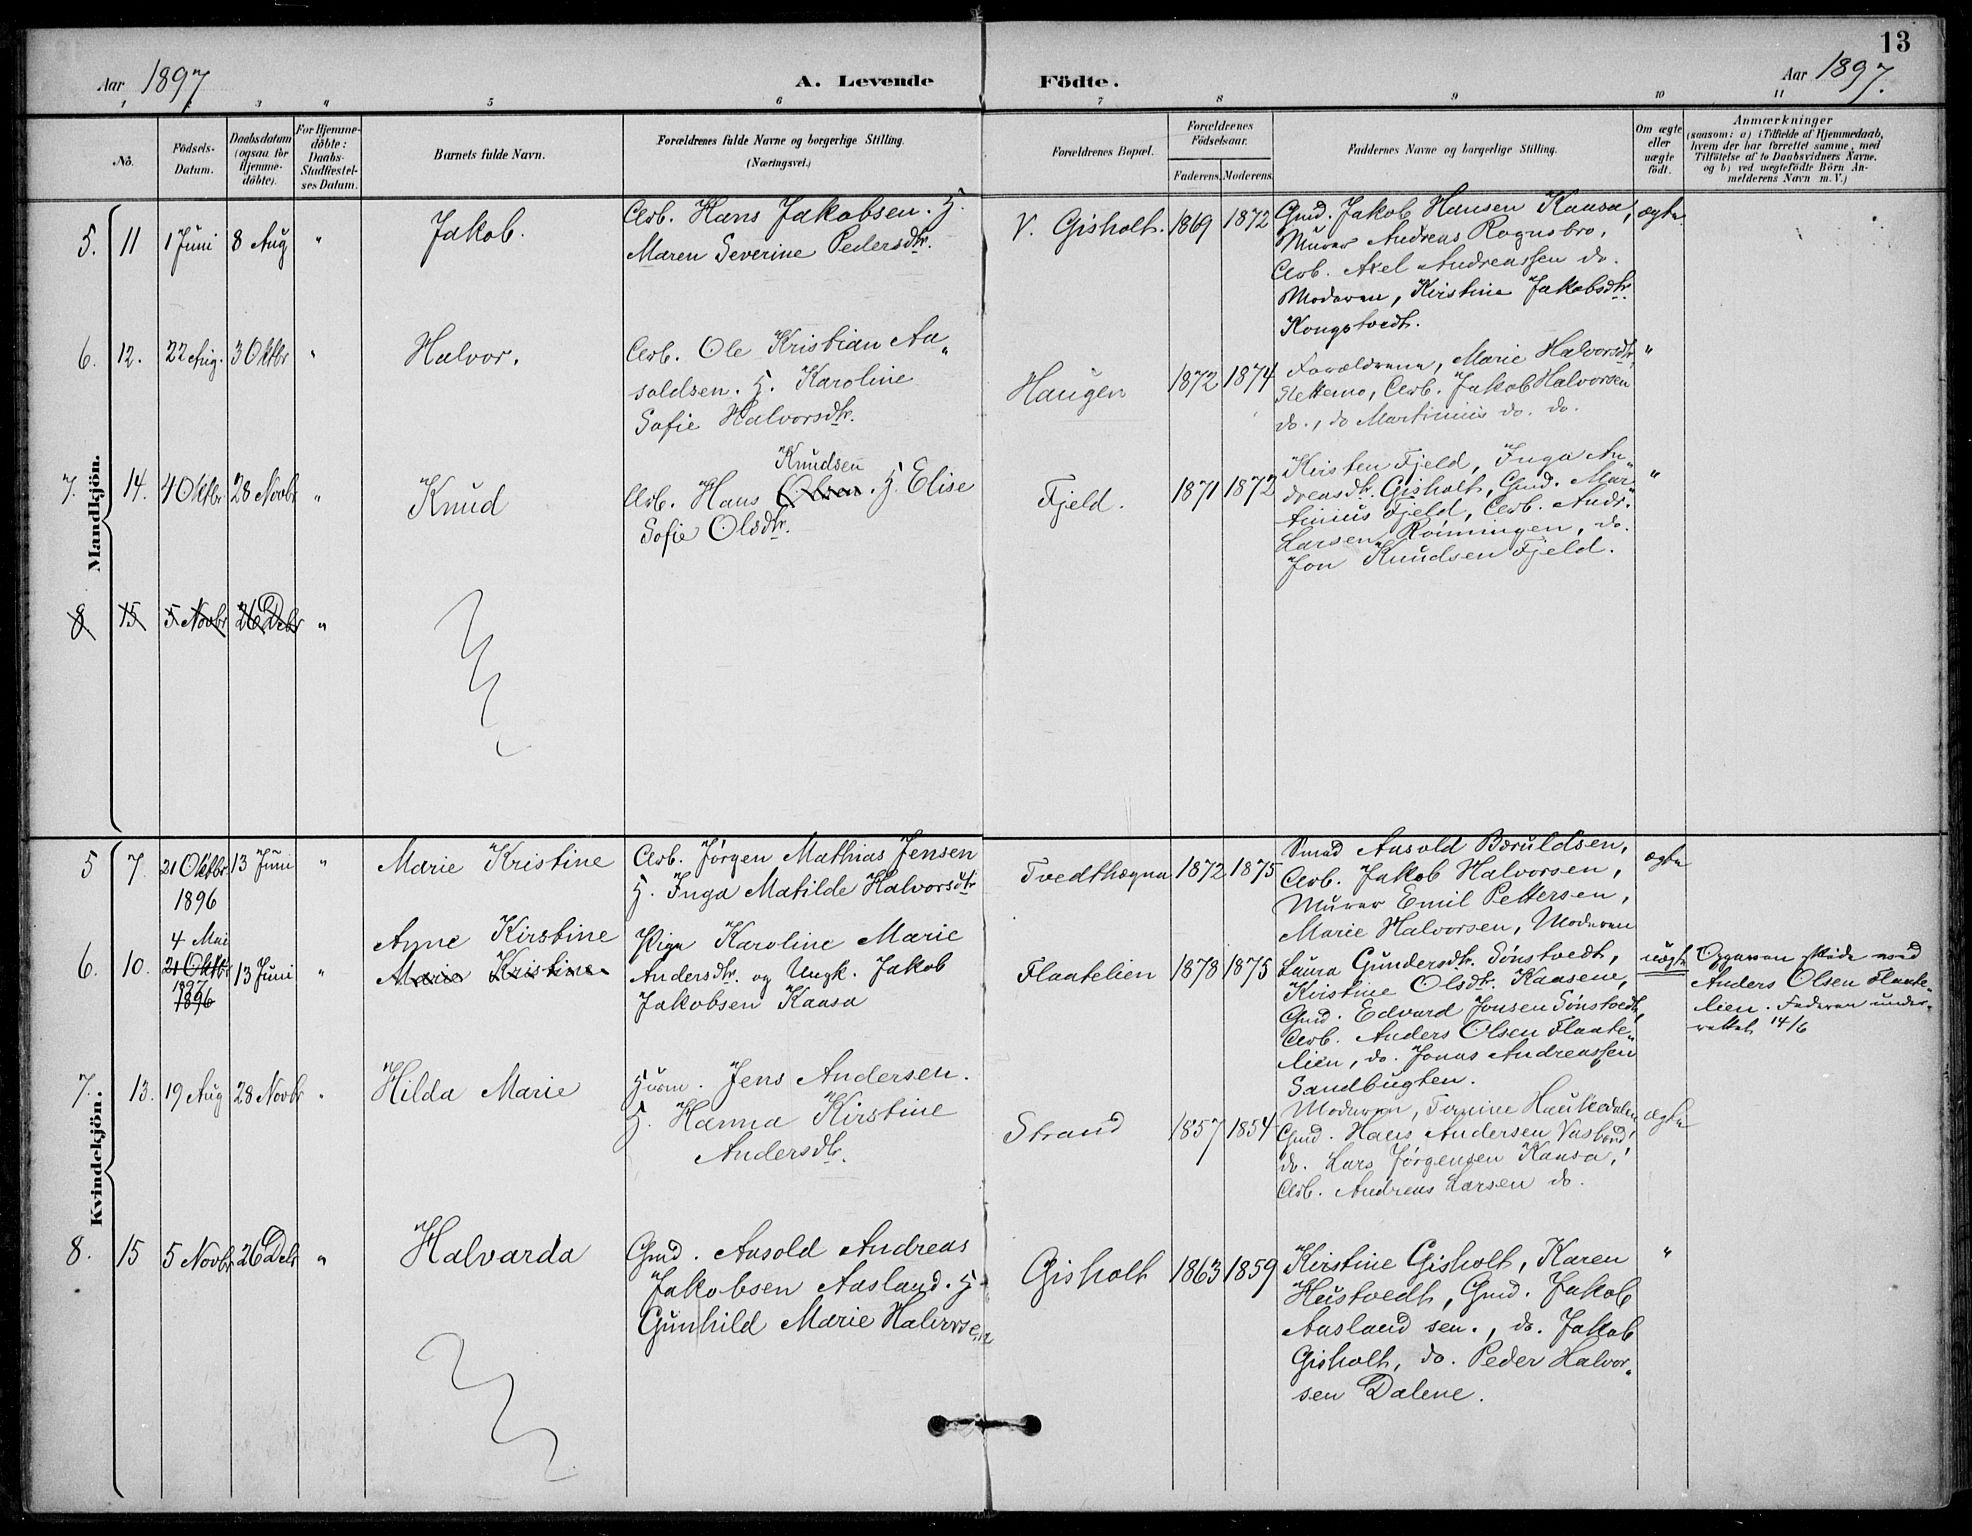 13
Aar 1897
A. Levende
Födte.
Aar 1897.
1 2 3 4 5 6 7 8 9 10 11
Nô.
Födsels-
Datum.
Daabsdatum
(ogsaa for
Hjemme-
döbte).
For Hjemme-
döbte:
Daabs-
Stadfæstel-
ses Datum.
Barnets fulde Navn.
Forældrenes fulde Navne og borgerlige Stilling.
(Næringsvei.)
Forældrenes Bopæl.
Forældrenes
Födselsaar.
Faderens. Moderens.
Faddernes Navne og borgerlige Stilling.
Om ægte
eller
uægte
födt.
Anmærkninger
(saasom: a) i Tilfælde af Hjemmedaab,
hvem der har forrettet samme, med
Tilföielse af to Daabsvidners Navne.
og b) ved uægtefödte Börn An-
melderens Navn m. V.)
Mandkjön.
5. 11 1 Juni 8 Aug "
Jakob.
Arb. Hans Jakobsen. H.
Maren Severine Pedersdtr.
V. Gisholt. 1869 1872
Gmd. Jakob Hansen Kaasa,
Murer Andreas Rognsbro,
Arb. Axel Andreassen do.
Moderen, Kirstine Jakobsdtr.
Kongstvedt.
ægte
6. 12. 22 Aug. 3 Oktbr "
Halvor.
Arb. Ole Kristian Aa„
soldsen. H. Karoline
Sofie Halvorsdtr.
Haugen 1872 1874
Forældrene, Marie Halvorsdtr.
Slettemo, Arb. Jakob Halvorsen
do., do Martinius do. do.
"
7. 14. 4 Oktbr 28 Novbr "
Knud
Knudsen
Arb. Hans Olsen. H. Elise
Sofie Olsdtr.
Fjeld. 1871 1872
Kirsten Fjeld, Inga An„
dreasdtr. Gisholt, Gmd. Mar„
tinius Fjeld, Arb. Andr.
Larsen Rønningen, do.
Jon Knudsen Fjeld.
"
8 15 5 Novbr 26 Debr "
Kvindekjön.
5 7. 21 Oktbr. 13 Juni "
1896
Marie Kristine
Arb. Jørgen Mathias Jensen
H. Inga Matilde Halvorsdtr
Tvedthægna 1872 1875
Smed Aasold Bæruldsen,
Arb. Jakob Halvorsen,
Murer Emil Pettersen,
Marie Halvorsen, Moderen
ægte
4 Mai
6. 10. 21 Oktbr 13 Juni "
1897
1896
Anne Kirstine
Marie Kristine
Pige Karoline Marie
Andersdtr. og Ungk. Jakob
Jakobsen Kaasa
Flaatelien 1878 1875
Laura Gundersdtr. Sønstvedt,
Kirstine Olsdtr. Kaasene,
Gmd. Edvard Jonsen Sønstvedt,
Arb. Anders Olsen Flaate„
lien, do. Jonas Andreassen
Sandbugten.
uægte
Opgaven skede ved
Anders Olsen Flaate„
lien. Faderen under-
rettet 14/6
7. 13. 19 Aug 28 Novbr "
Hilda Marie
Husm. Jens Andersen.
H. Hanna Kirstine
Andersdtr.
Strand 1857 1854
Moderen, Haukedalen
Gmd. Hans Andersen
do. Lars Jørgensen Kaasa,
Arb. Andreas Larsen do.
ægte
8. 15 5 Novbr. 26 Debr "
Halvarda
Gmd. Aasold Andreas
Jakobsen Aasland. H.
Gunhild Marie Halvorsen
Gisholt 1863 1859
Kirstine Gisholt, Karen
Hustvedt, Gmd. Jakob
Aasland sen., do. Jakob
Gisholt, do. Peder Halvor„
sen Dalene.
"